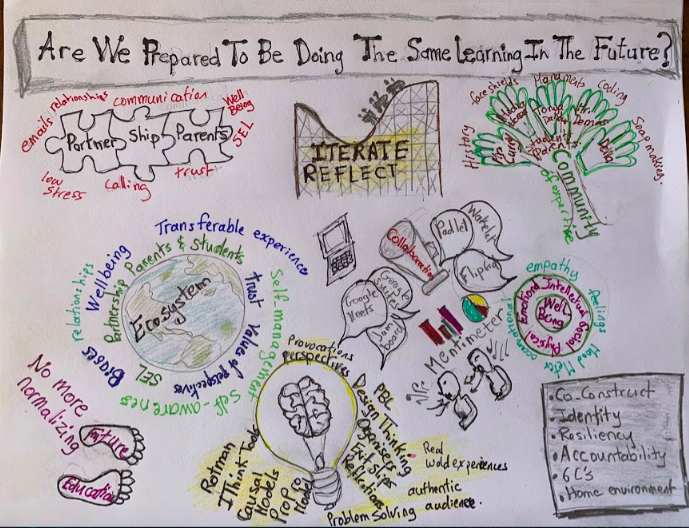 Are We Prepared To Be Doing The Same Learning In The Future?
emails
relationships
communication
Well
Being
SEL
Partner Ship Parents
low
stress
calling
trust
ITERATE
REFLECT
History
face shields
coding
Soap making.
Students
Parents
Delia
Community
of expertise
Transferable experience
Parents & Students
Partnership
Wellbeing
relationships
Biases
SEL
Ecosystem
trust
Value of perspectives
Self management
Self-awareness
Collaboration
Padlet
Wakelet
Flipgrid
Google
Meets
Google
Suites
Jam
board
Mentimeter
empathy
feelings
Mood Meter
Emotional Intellectual Social Physical
Well
Being
No more
normalizing
Future
Education
Provocations
perspectives
Rotman
I Think Tools
Causal
Models
Pro Pro
Model
PBL
Design Thinking
Organisers
Exit Slips
Reflections
Real
world experiences
authentic
audience.
Problem Solving
•Co-Construct
•Identity
•Resiliency
•Accountability
•6C's
•Home environment